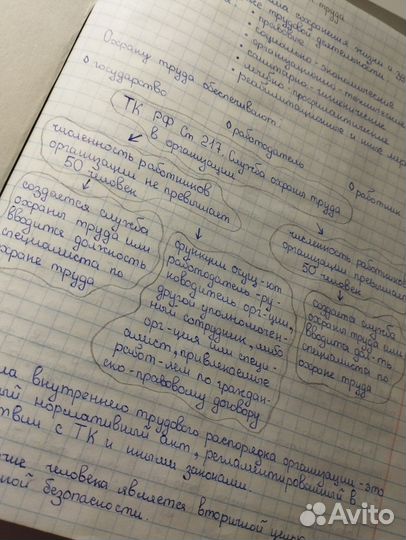 сохранения жизни и
трудовой деятельности.
• правовые
• социально-экономические
• организационно-технические
• санитарно-гигиенические
• лечебно-профилактические
• реабилитационные и иные мер
Охрану труда обеспечивают
государство
работодатель
работник
ТК РФ Ст 217. Служба охраны труда
в организации
численность работников
организации не превышает
50 человек
создается служба
охраны труда или
вводится должность
специалиста по
охране труда
функции осущ-ют
работодатель - ру-
ководитель орг-ции,
другой уполномочен-
ный сотрудник, либо
орг-ция или специ-
алист, привлекаемые
работ-лем по граждан-
ско-правовому договору
численность работников
организации превышает
50 человек
создаётся служба
охраны труда или
вводит дол-ть
специалиста по
охране труда
внутреннего трудового распорядка организации - это
нормативный акт, регламентированный в
с ТК и иными законами.
человека является вторичной
безопасности.
Avito